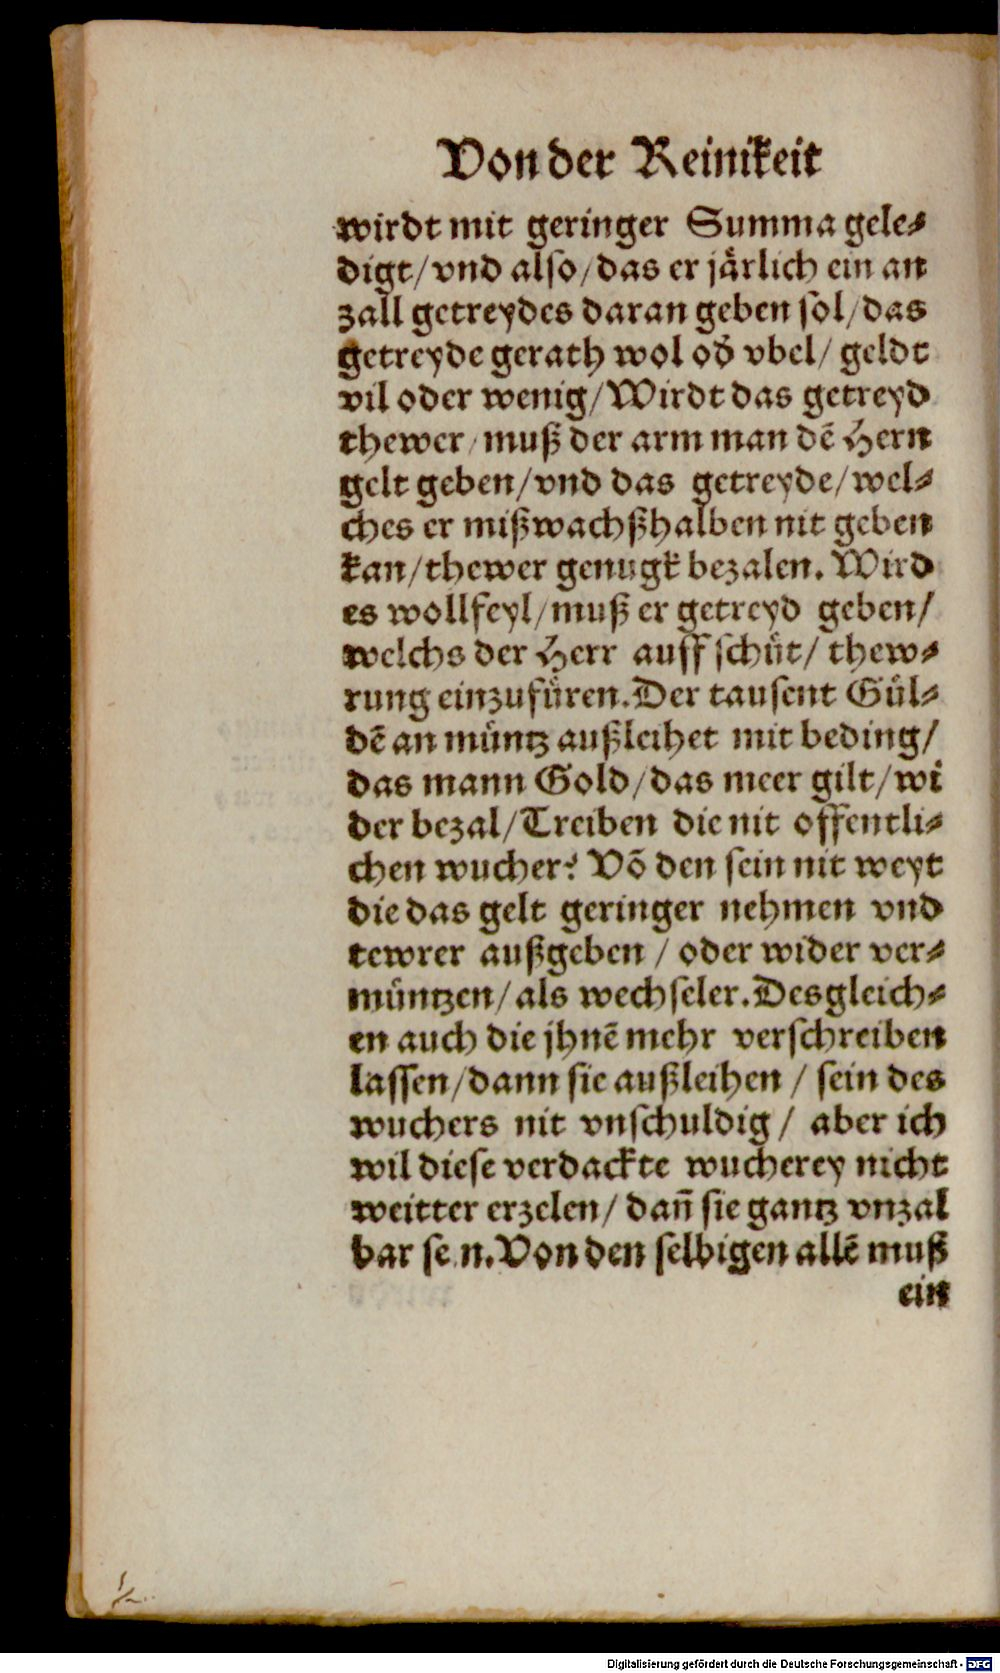 Von der Reinikeit
wirdt mit geringer Summa gele⸗
digt/vnd also/das er jaͤrlich ein an
zall getreydes daran geben sol/das
getreyde gerath wol od̕ vbel/ geldt
vil oder wenig/Wirdt das getreyd
thewer/muß der arm man dẽ Hern
gelt geben/vnd das getreyde/wel⸗
ches er mißwachßhalben nit geben
kan/thewer genugk bezalen. Wird
es wollfeyl/muß er getreyd geben/
welchs der Herr auff schuͤt/ thew⸗
rung einzufuͤren.Der tausent Guͤl⸗
dẽ an muͤntz außleihet mit beding/
das mann Gold/das meer gilt/wi
der bezal/Treiben die nit offentli⸗
chen wucher? Võ den sein nit weyt
die das gelt geringer nehmen vnd
tewrer außgeben / oder wider ver⸗
muͤntzen/als wechseler.Desgleich⸗
en auch die jhnẽ mehr verschreiben
lassen/dann sie außleihen / sein des
wuchers nit vnschuldig/ aber ich
wil diese verdackte wucherey nicht
weitter erzelen/ dañ sie gantz vnzal
bar se n.Von den selbigen allẽ muß
ein
Digitalisierung gefördert durch die Deutsche Forschungsgemeinschaft - DFG